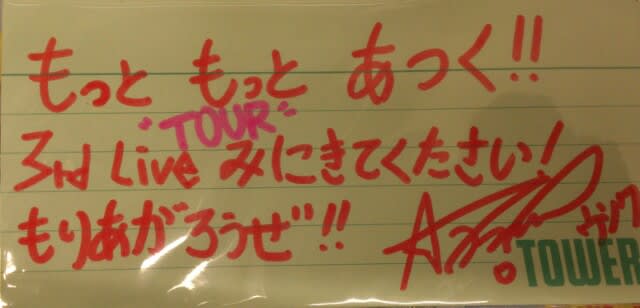 もっと もっと あつく!!
"TOUR"
3rd Live みにきてくたさい!
もりあがろうぜ!!
TOWER